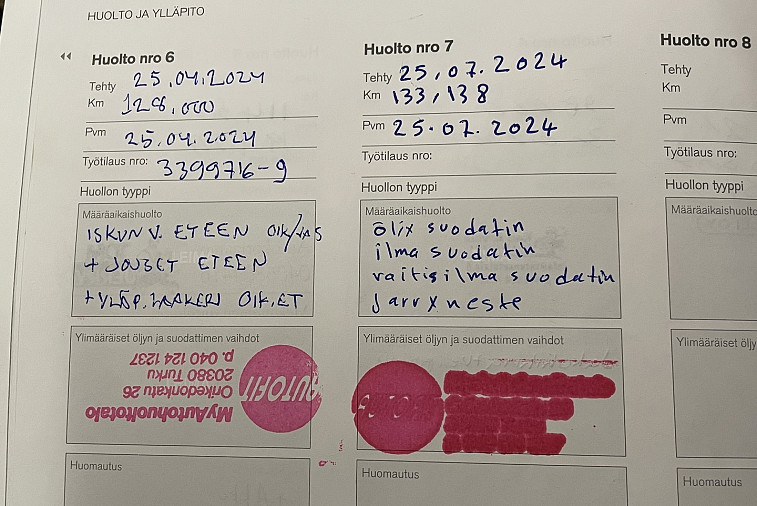 HUOLTO JA YLLÄPITO
Huolto nro 6
Tehty 25.04.2024
Km 128.000
Pvm 25.04.2024
Työtilaus nro: 3399716-9
Huollon tyyppi
Määräaikaishuolto
ISKUN V. ETEEN OIK/VAS
+ JOUSET ETEEN
+ YLÄP. LAAKERI OIK. ET
Ylimääräiset öljyn ja suodattimen vaihdot
MyAutohuoltotalo
Orikedonkatu 26
20380 Turku
p. 040 124 1237
AUTOFIT
Huomautus
Huolto nro 7
Tehty 25.07.2024
Km 133,138
Pvm 25.07.2024
Työtilaus nro:
Huollon tyyppi
Määräaikaishuolto
ölix suodatin
ilma suodatin
raitisilma suodatin
Jarrxneste
Ylimääräiset öljyn ja suodattimen vaihdot
Huomautus
Huolto nro 8
Tehty
Km
Pvm
Työtilaus nro:
Huollon tyyppi
Määräaikaishuolto
Ylimääräiset öljy
Huomautus